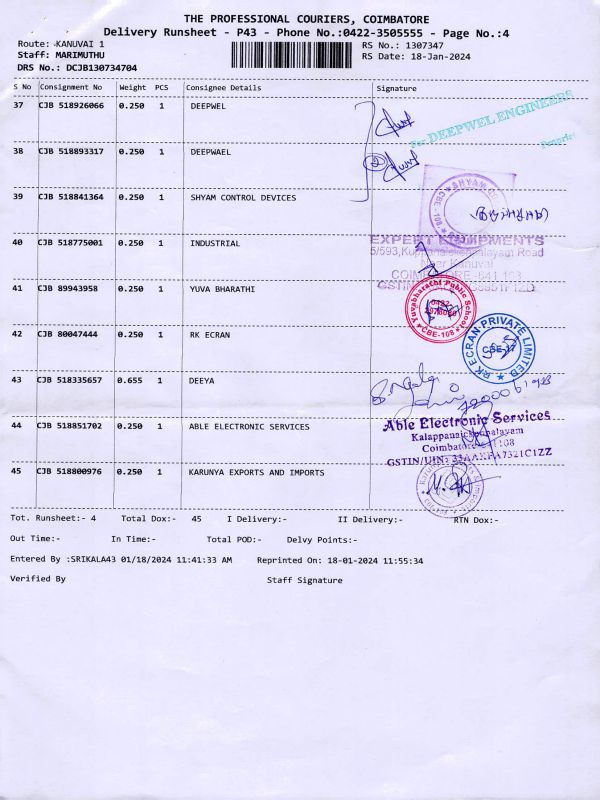 THE PROFESSIONAL COURIERS, COIMBATORE
Delivery Runsheet - P43 - Phone No.:0422-3505555 - Page No.:4
Route: KANUVAI 1
RS No.: 1307347
Staff: MARIMUTHU
RS Date: 18-Jan-2024
DRS No.: DCJB130734704
S No Consignment No Weight PCS Consignee Details Signature
37 CJB 518926066 0.250 1 DEEPWEL
For DEEPWEL ENGINEERS
38 CJB 518893317 0.250 1 DEEPWAEL
2
39 CJB 518841364 0.250 1 SHYAM CONTROL DEVICES
SHYAM
40 CJB 518775001 0.250 1 INDUSTRIAL
EXPERT EQUIPMENTS
5/593, Kuppanaickenpalayam Road
Near Kanuvai
COIMBATORE-641 108
GSTIN
41 CJB 89943958 0.250 1 YUVA BHARATHI
Yuvabharathi Public School
CBE-108
42 CJB 80047444 0.250 1 RK ECRAN
RK ECRAN PRIVATE LIMITED
CBE-17
43 CJB 518335657 0.655 1 DEEYA
44 CJB 518851702 0.250 1 ABLE ELECTRONIC SERVICES
Able Electronic Services
Kalappanaickenpalayam
Coimbatore
GSTIN/UIN:
45 CJB 518800976 0.250 1 KARUNYA EXPORTS AND IMPORTS
Tot. Runsheet:- 4 Total Dox:- 45 I Delivery:- II Delivery:- RTN Dox:-
Out Time:- In Time:- Total POD:- Delvy Points:-
Entered By :SRIKALA43 01/18/2024 11:41:33 AM Reprinted On: 18-01-2024 11:55:34
Verified By Staff Signature